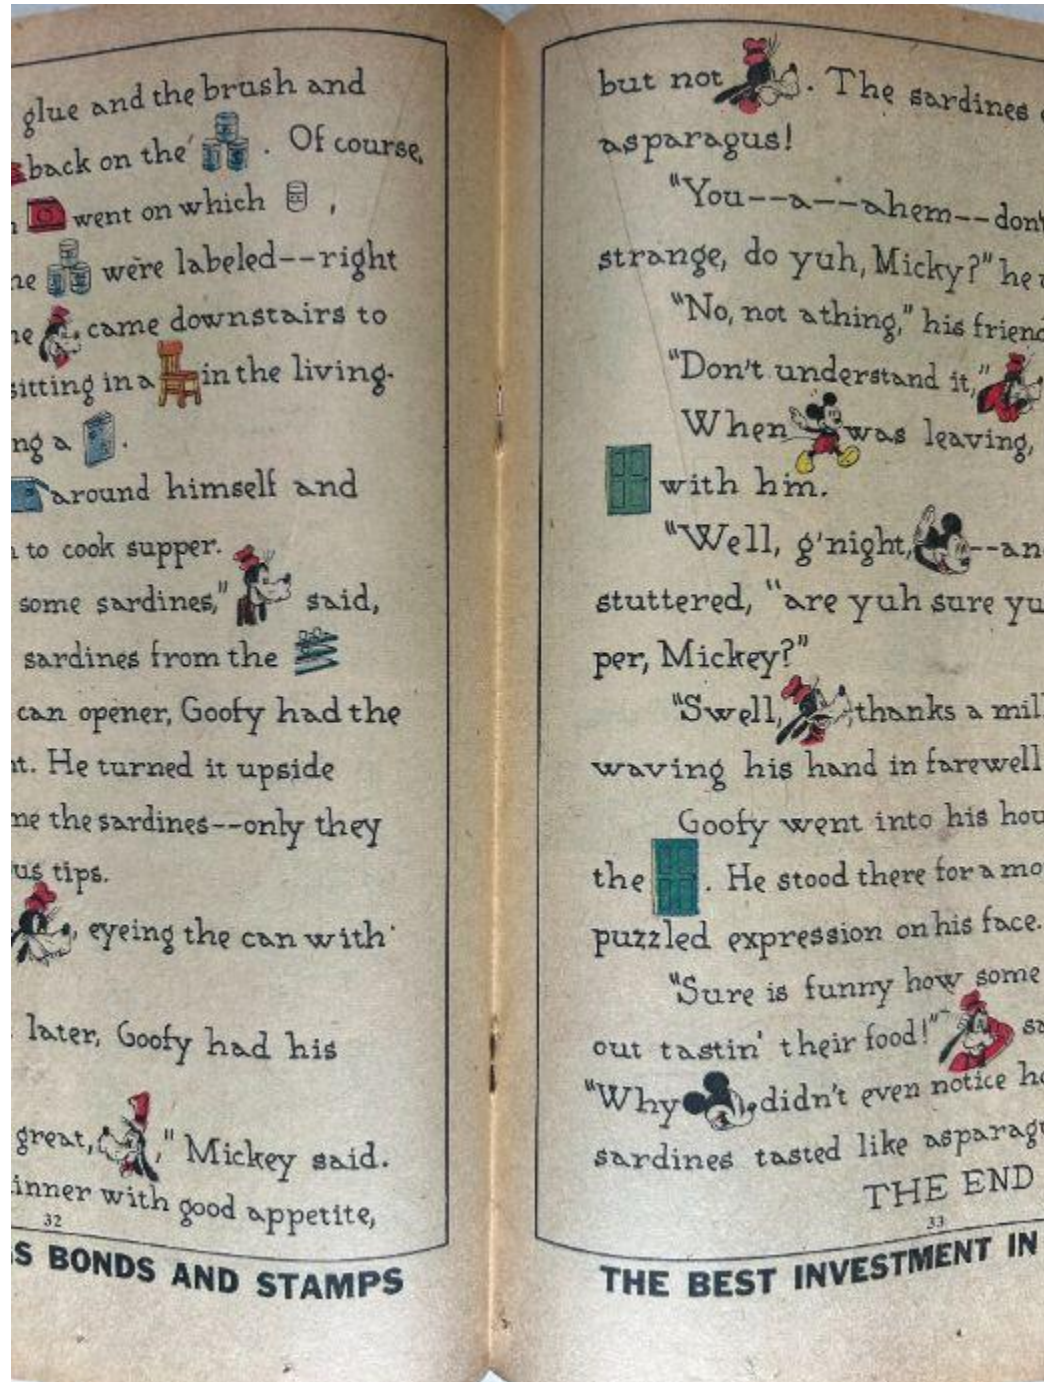 glue and the brush and
back on the . Of course,
went on which ,
were labeled--right
came downstairs to
sitting in a in the living-
a .
around himself and
to cook supper.
some sardines," said,
sardines from the
can opener, Goofy had the
. He turned it upside
the sardines--only they
tips.
, eyeing the can with
later, Goofy had his
great, ," Mickey said.
with good appetite,
32
BONDS AND STAMPS
but not . The sardines
asparagus!
"You--a--ahem--don't
strange, do yuh, Micky?" he
"No, not athing," his friend
"Don't understand it,"
When was leaving,
with him.
"Well, g'night, --
stuttered, "are yuh sure
per, Mickey?"
"Swell, , thanks a
waving his hand in farewell
Goofy went into his
the . He stood there for a
puzzled expression on his face.
"Sure is funny how some
out tastin' their food!"
"Why , didn't even notice
sardines tasted like
THE END
33
THE BEST INVESTMENT IN